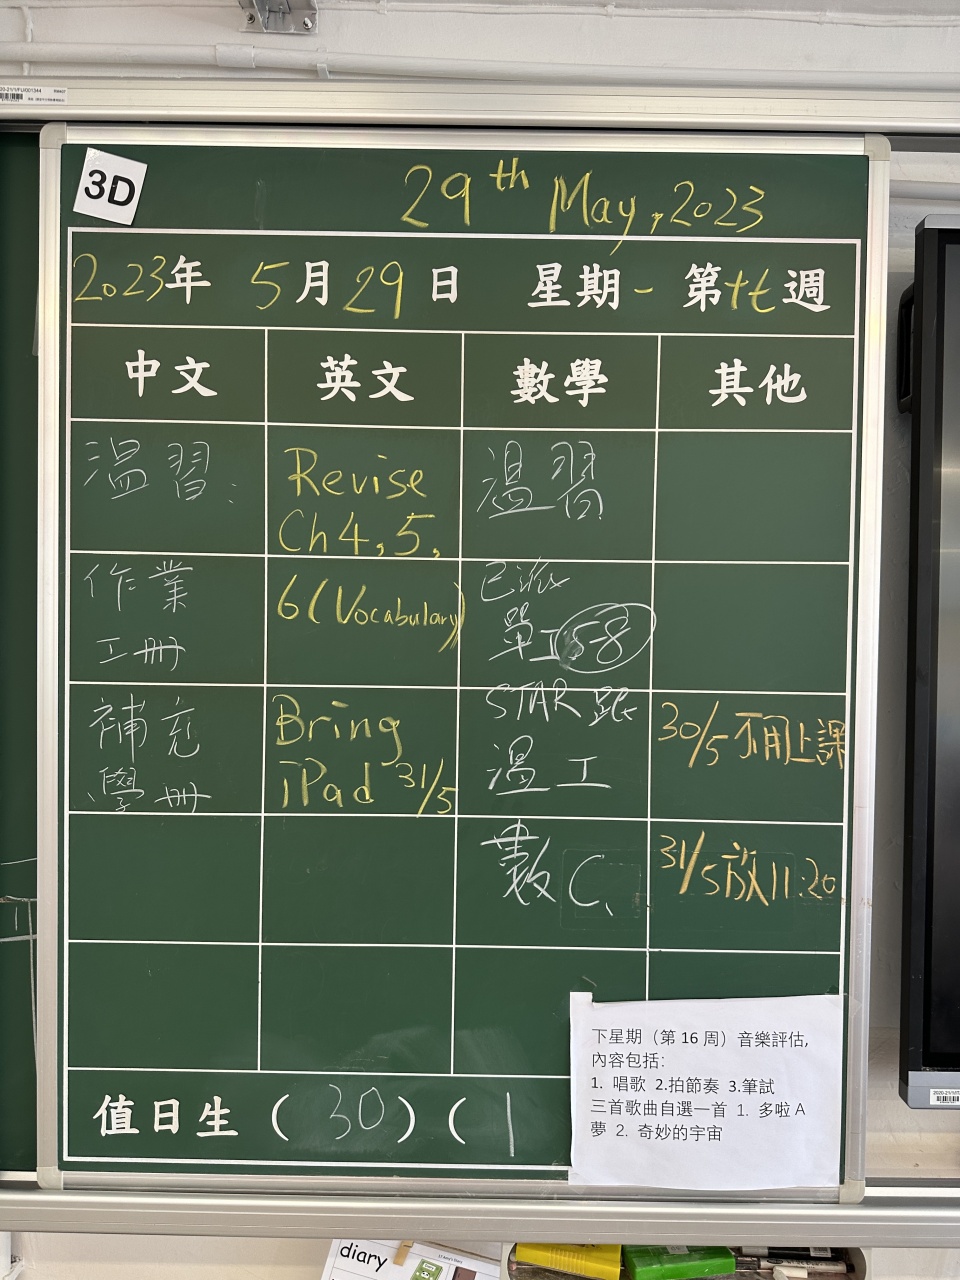 3D
29th May, 2023
2023年 5月29日 星期一 第十七週
中文 英文 數學 其他
溫習:
作業
工冊
補充
學冊
Revise
Ch 4, 5,
6 (Vocabulary)
Bring
iPad 31/5
溫習
已派
單工 5-8
STAR
溫工
數C、
30/5 不用上課
31/5 放11:20
值日生 ( 30 ) ( 1
下星期（第 16 周）音樂評估,
內容包括:
1. 唱歌 2.拍節奏 3.筆試
三首歌曲自選一首 1. 多啦 A
夢 2. 奇妙的宇宙
diary